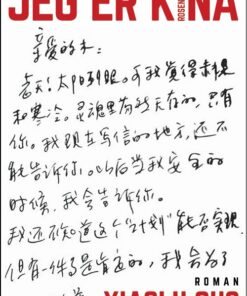 JEG ER KINA
亲爱的木:
老天!太阳刺眼。可我觉得赤裸
和寒冷。灵魂里有些天存的,只有
你。我现在写信的地方,还不
能告诉你。以后当我安全的
时候,我会告诉你。
我还不知道这个“计划”能否实现
但有一件事是肯定的,我会为了
ROMAN
XIAOLU GUO